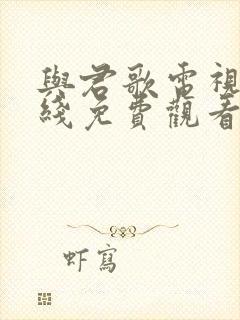 與君歌電視
綫免費觀看
虾寫